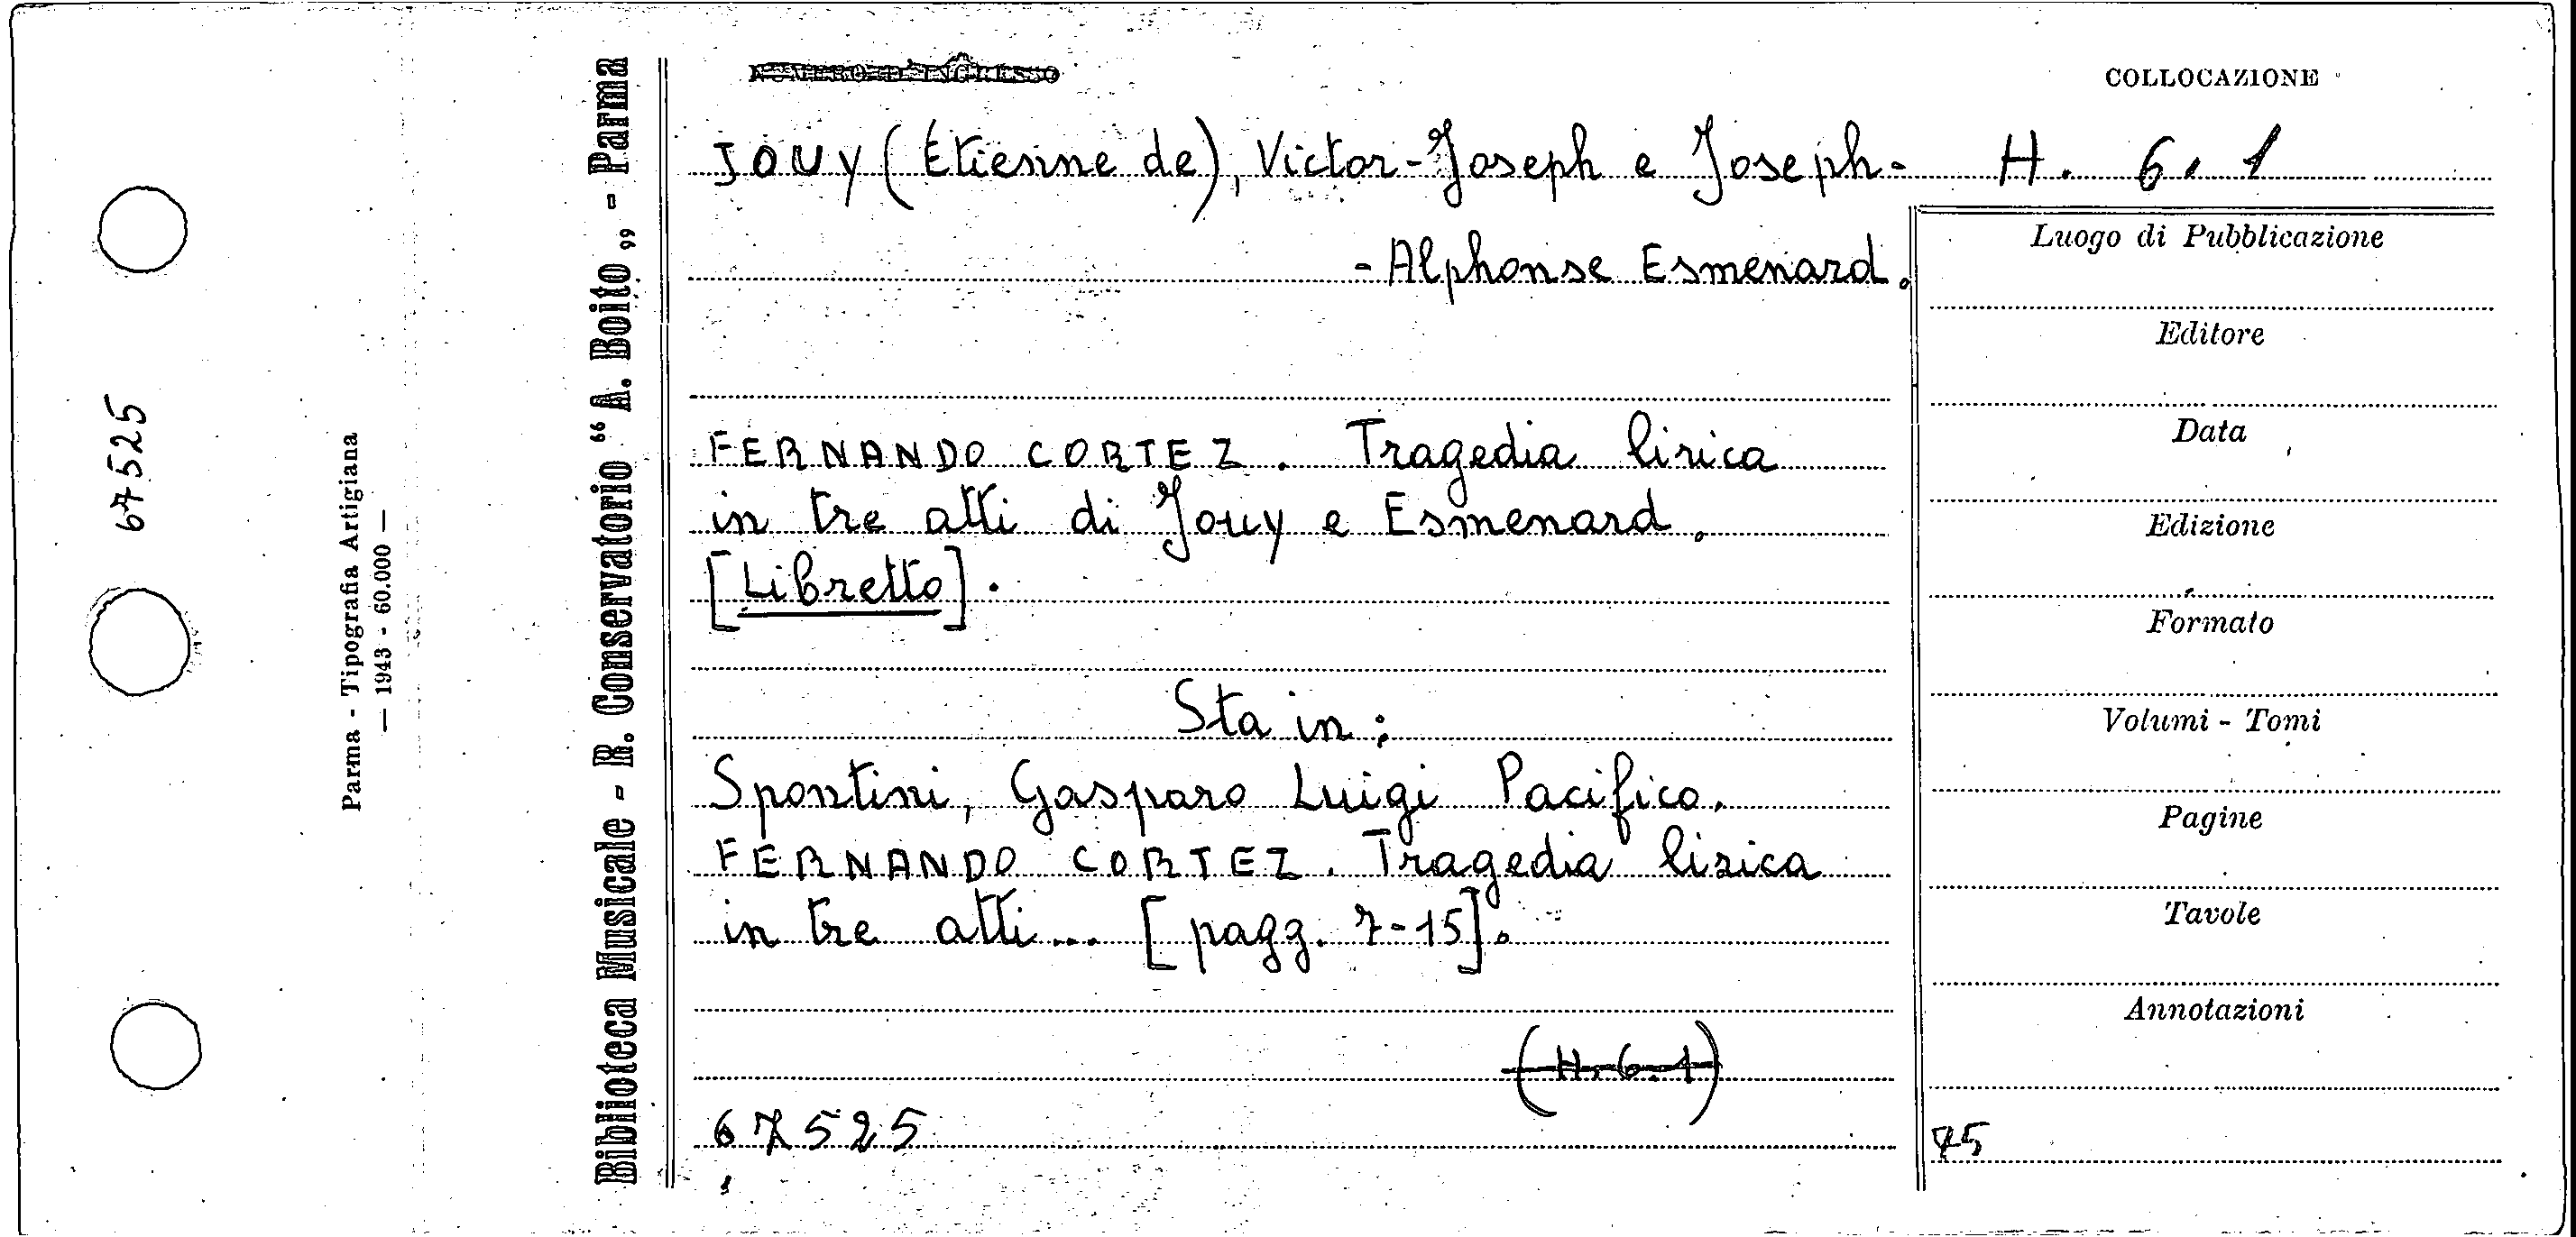 67525
Parma - Tipografia Artigiana
— 1943 - 60.000 —
Biblioteca Musicale - R. Conservatorio “A. Boito„ - Parma
NUMERO D'INGRESSO
COLLOCAZIONE
JOUY (Étienne de), Victor-Joseph e Joseph- H. 6. 1
-Alphonse Esmenard.
FERNANDO CORTEZ. Tragedia lirica
in tre atti di Jouy e Esmenard.
[Libretto].
Sta in:
Spontini, Gasparo Luigi Pacifico.
FERNANDO CORTEZ. Tragedia lirica
in tre atti... [pagg. 7-15].
(H. 6. 1)
67525
Luogo di Pubblicazione
Editore
Data
Edizione
Formato
Volumi - Tomi
Pagine
Tavole
Annotazioni
75